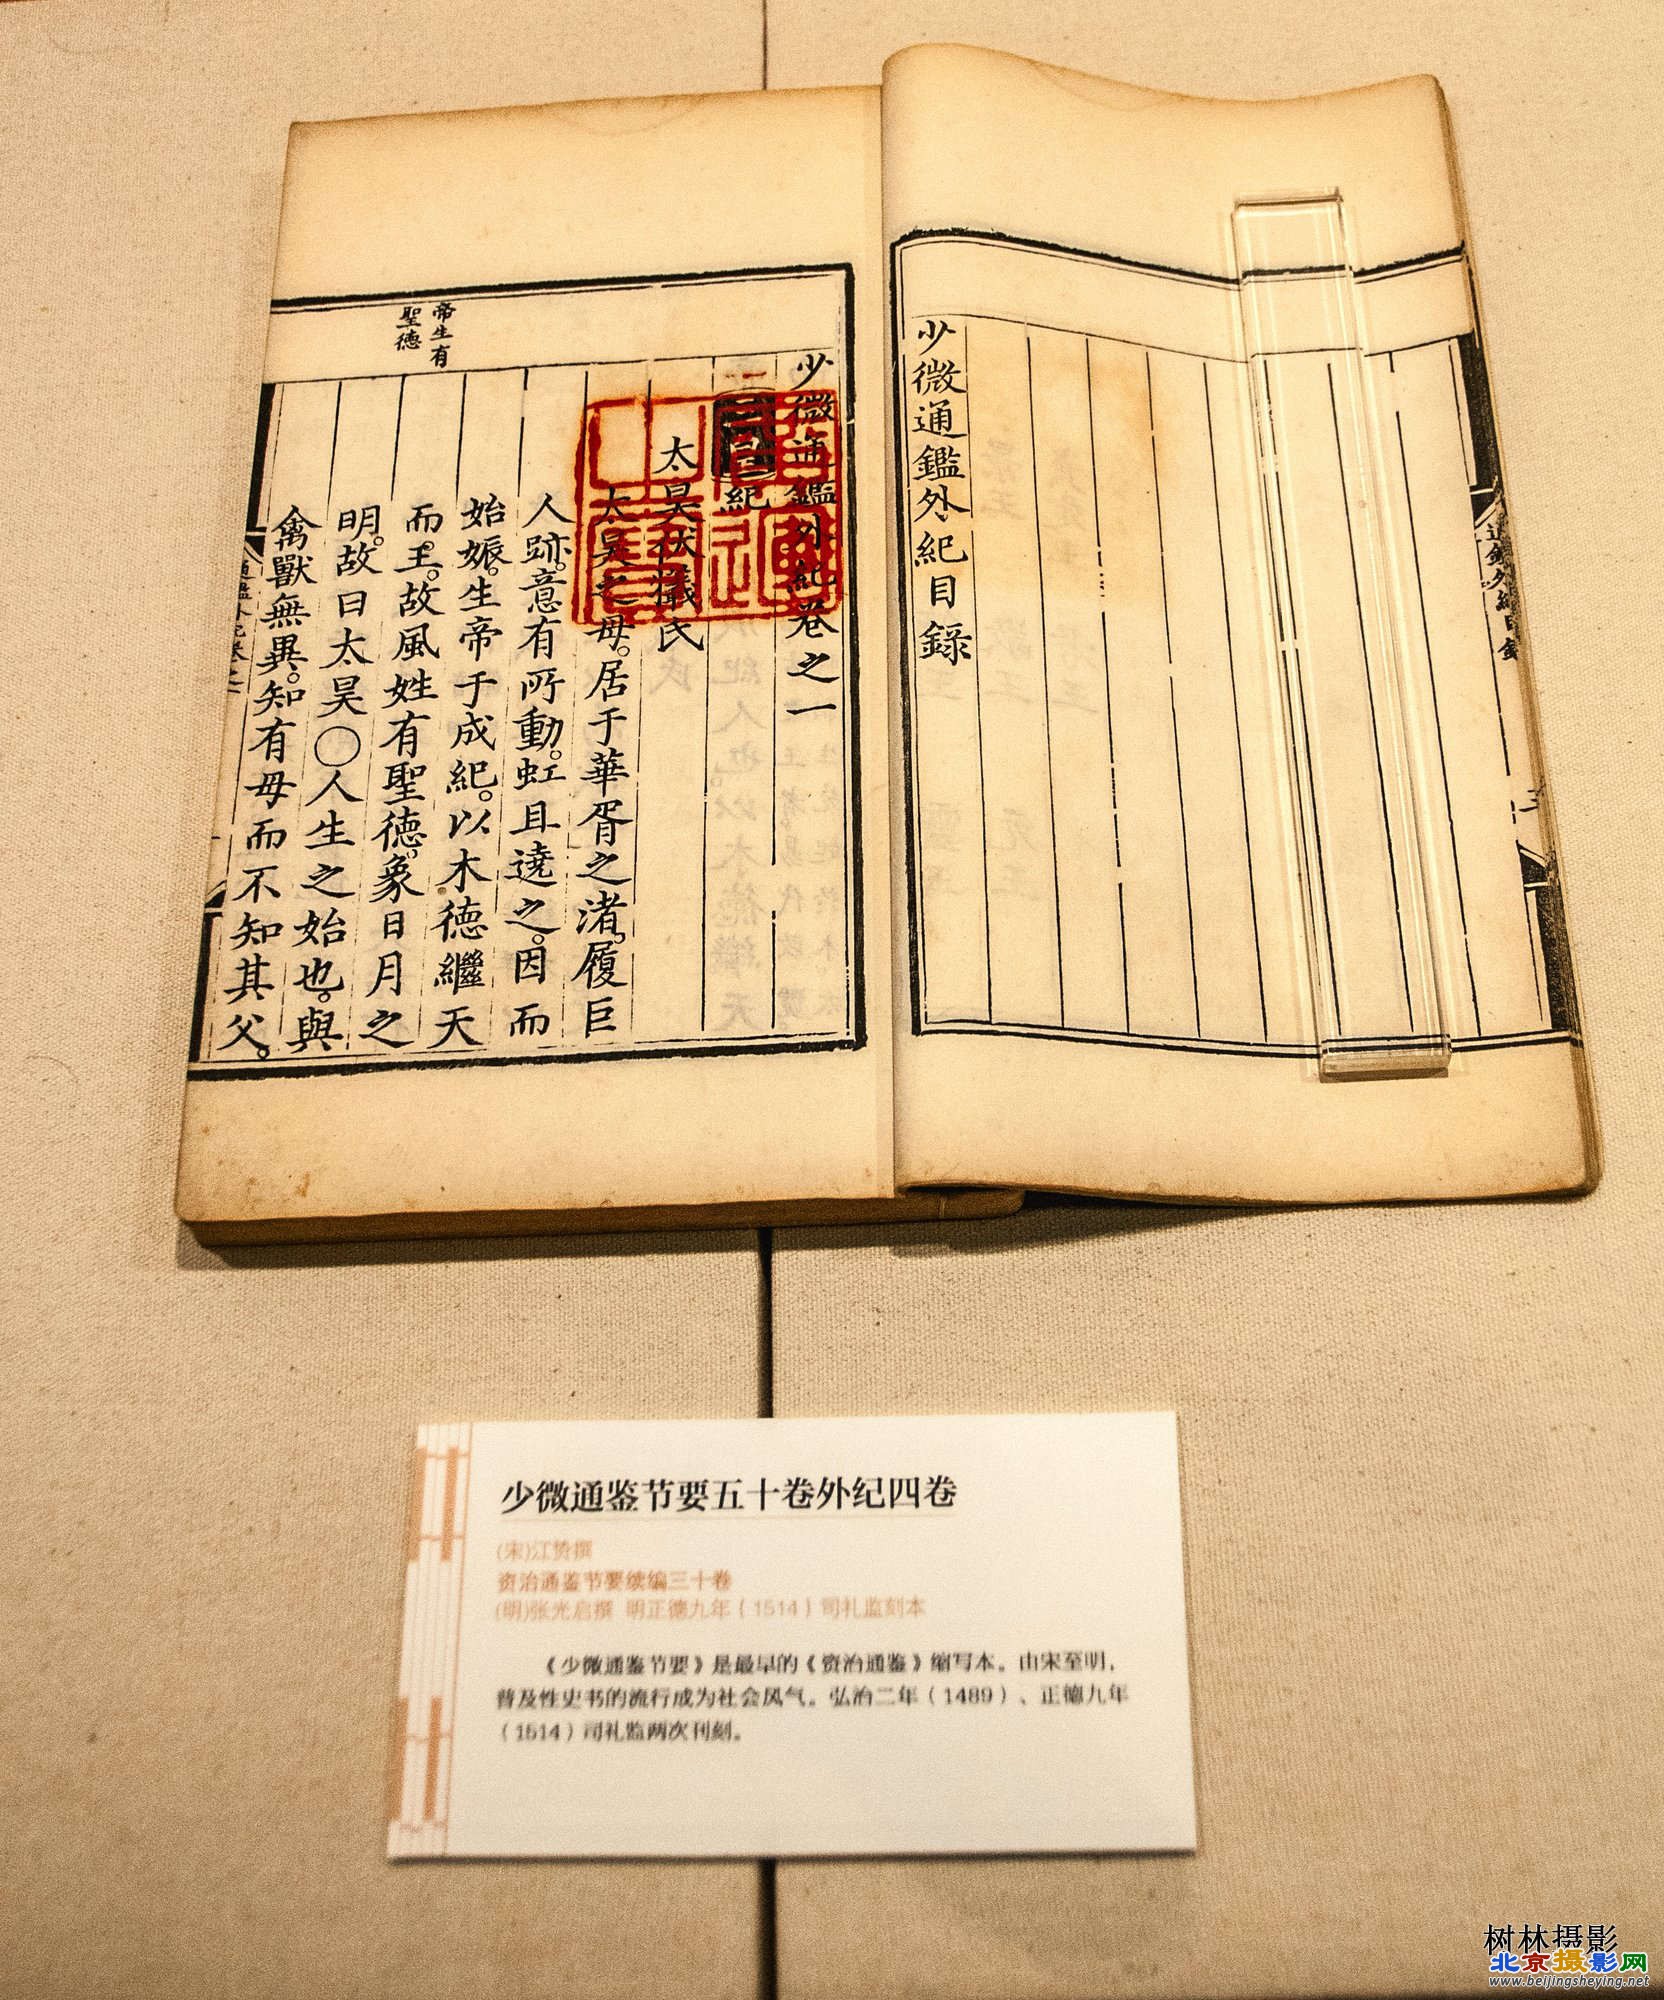 少微通鑑外紀目錄
少微通鑑外紀卷之一
紀
太昊伏犧氏
太昊之母。居于華胥之渚。履巨
人跡。意有所動。虹且遶之。因而
始娠。生帝于成紀。以木德繼天
而王。故風姓有聖德。象日月之
明。故曰太昊〇人生之始也。與
禽獸無異。知有母而不知其父。
帝生有
聖德
少微通鉴节要五十卷外纪四卷
(宋)江贽撰
资治通鉴节要续编三十卷
(明)张光启撰 明正德九年（1514）司礼监刻本
《少微通鉴节要》是最早的《资治通鉴》缩写本。由宋至明，
普及性史书的流行成为社会风气。弘治二年（1489）、正德九年
（1514）司礼监两次刊刻。
树林摄影
北京摄影网
www.beijingsheying.net